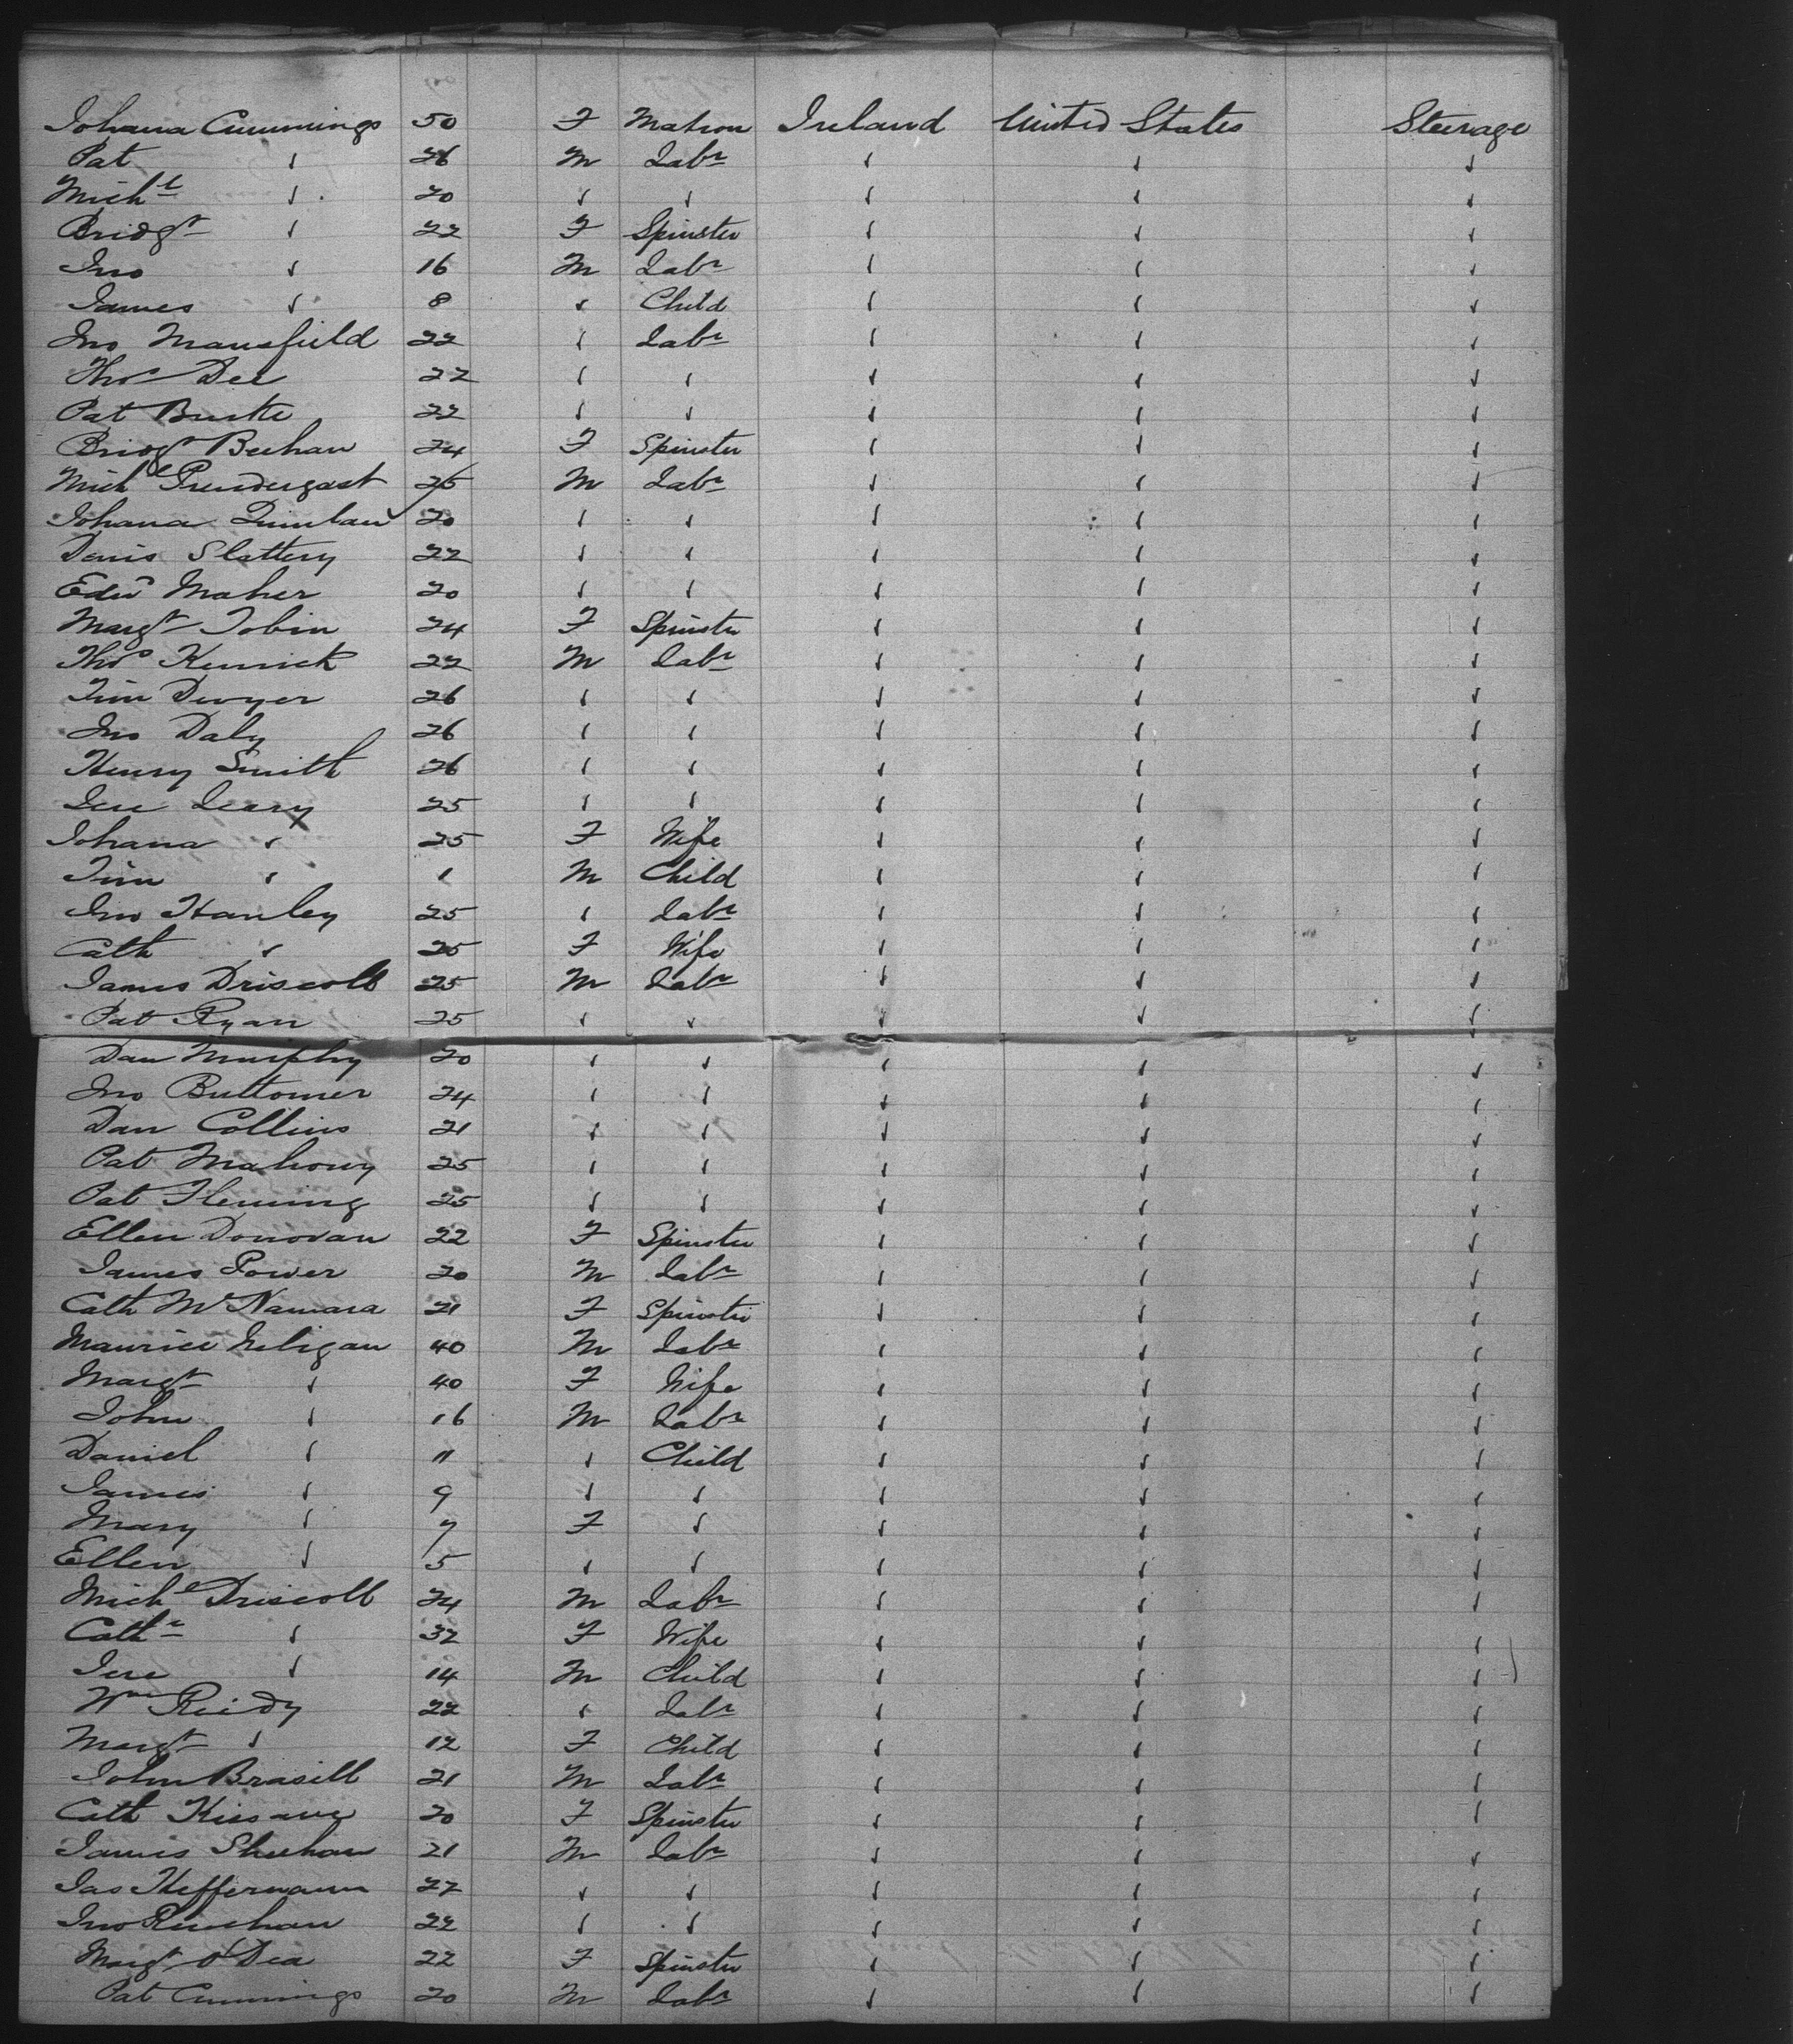 Johana Cummings 50 F Matron Ireland United States Steerage
Pat " 26 M Labr " " "
Michl " 20 " " " " "
Bridgt " 22 F Spinster " " "
Jno " 16 M Labr " " "
James " 8 " Child " " "
Jno Mansfield 22 " Labr " " "
Thos Dee 22 " " " " "
Pat Burke 22 " " " " "
Bridgt Beehan 24 F Spinster " " "
Michl Prendergast 25 M Labr " " "
Johana Quinlan 20 " " " " "
Denis Slattery 22 " " " " "
Edwd Maher 20 " " " " "
Margt Tobin 24 F Spinster " " "
Thos Kenrick 22 M Labr " " "
Tim Dwyer 26 " " " " "
Jno Daly 26 " " " " "
Henry Smith 26 " " " " "
Jere Leary 25 " " " " "
Johana " 25 F Wife " " "
Tim " 1 M Child " " "
Jno Hanley 25 " Labr " " "
Cath " 25 F Wife " " "
James Driscoll 25 M Labr " " "
Pat Ryan 25 " " " " "
Dan Murphy 20 " " " " "
Jno Buttomer 24 " " " " "
Dan Collins 21 " " " " "
Pat Mahony 25 " " " " "
Pat Fleming 25 " " " " "
Ellen Donovan 22 F Spinster " " "
James Power 20 M Labr " " "
Cath McNamara 21 F Spinster " " "
Maurice Neligan 40 M Labr " " "
Margt " 40 F Wife " " "
John " 16 M Labr " " "
Daniel " 11 " Child " " "
James " 9 " " " " "
Mary " 7 F " " " "
Ellen " 5 " " " " "
Michl Driscoll 24 M Labr " " "
Cathe " 32 F Wife " " "
Jere " 14 M Child " " "
Wm Reidy 22 " Labr " " "
Margt " 12 F Child " " "
John Brasill 21 M Labr " " "
Cath Kissane 20 F Spinster " " "
James Sheehan 21 M Labr " " "
Jas Heffernann 27 " " " " "
Jno 22 " " " " "
Margt O'Dea 22 F Spinster " " "
Pat Cummings 20 M Labr " " "